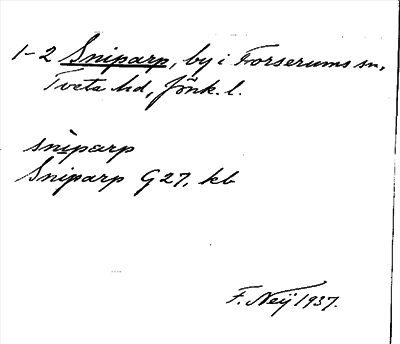 1-2 Sniparp, by i Forserums sn,
Tveta hd, Jönk. l.
snìparp
Sniparp G27, kb
F. Neij 1937.